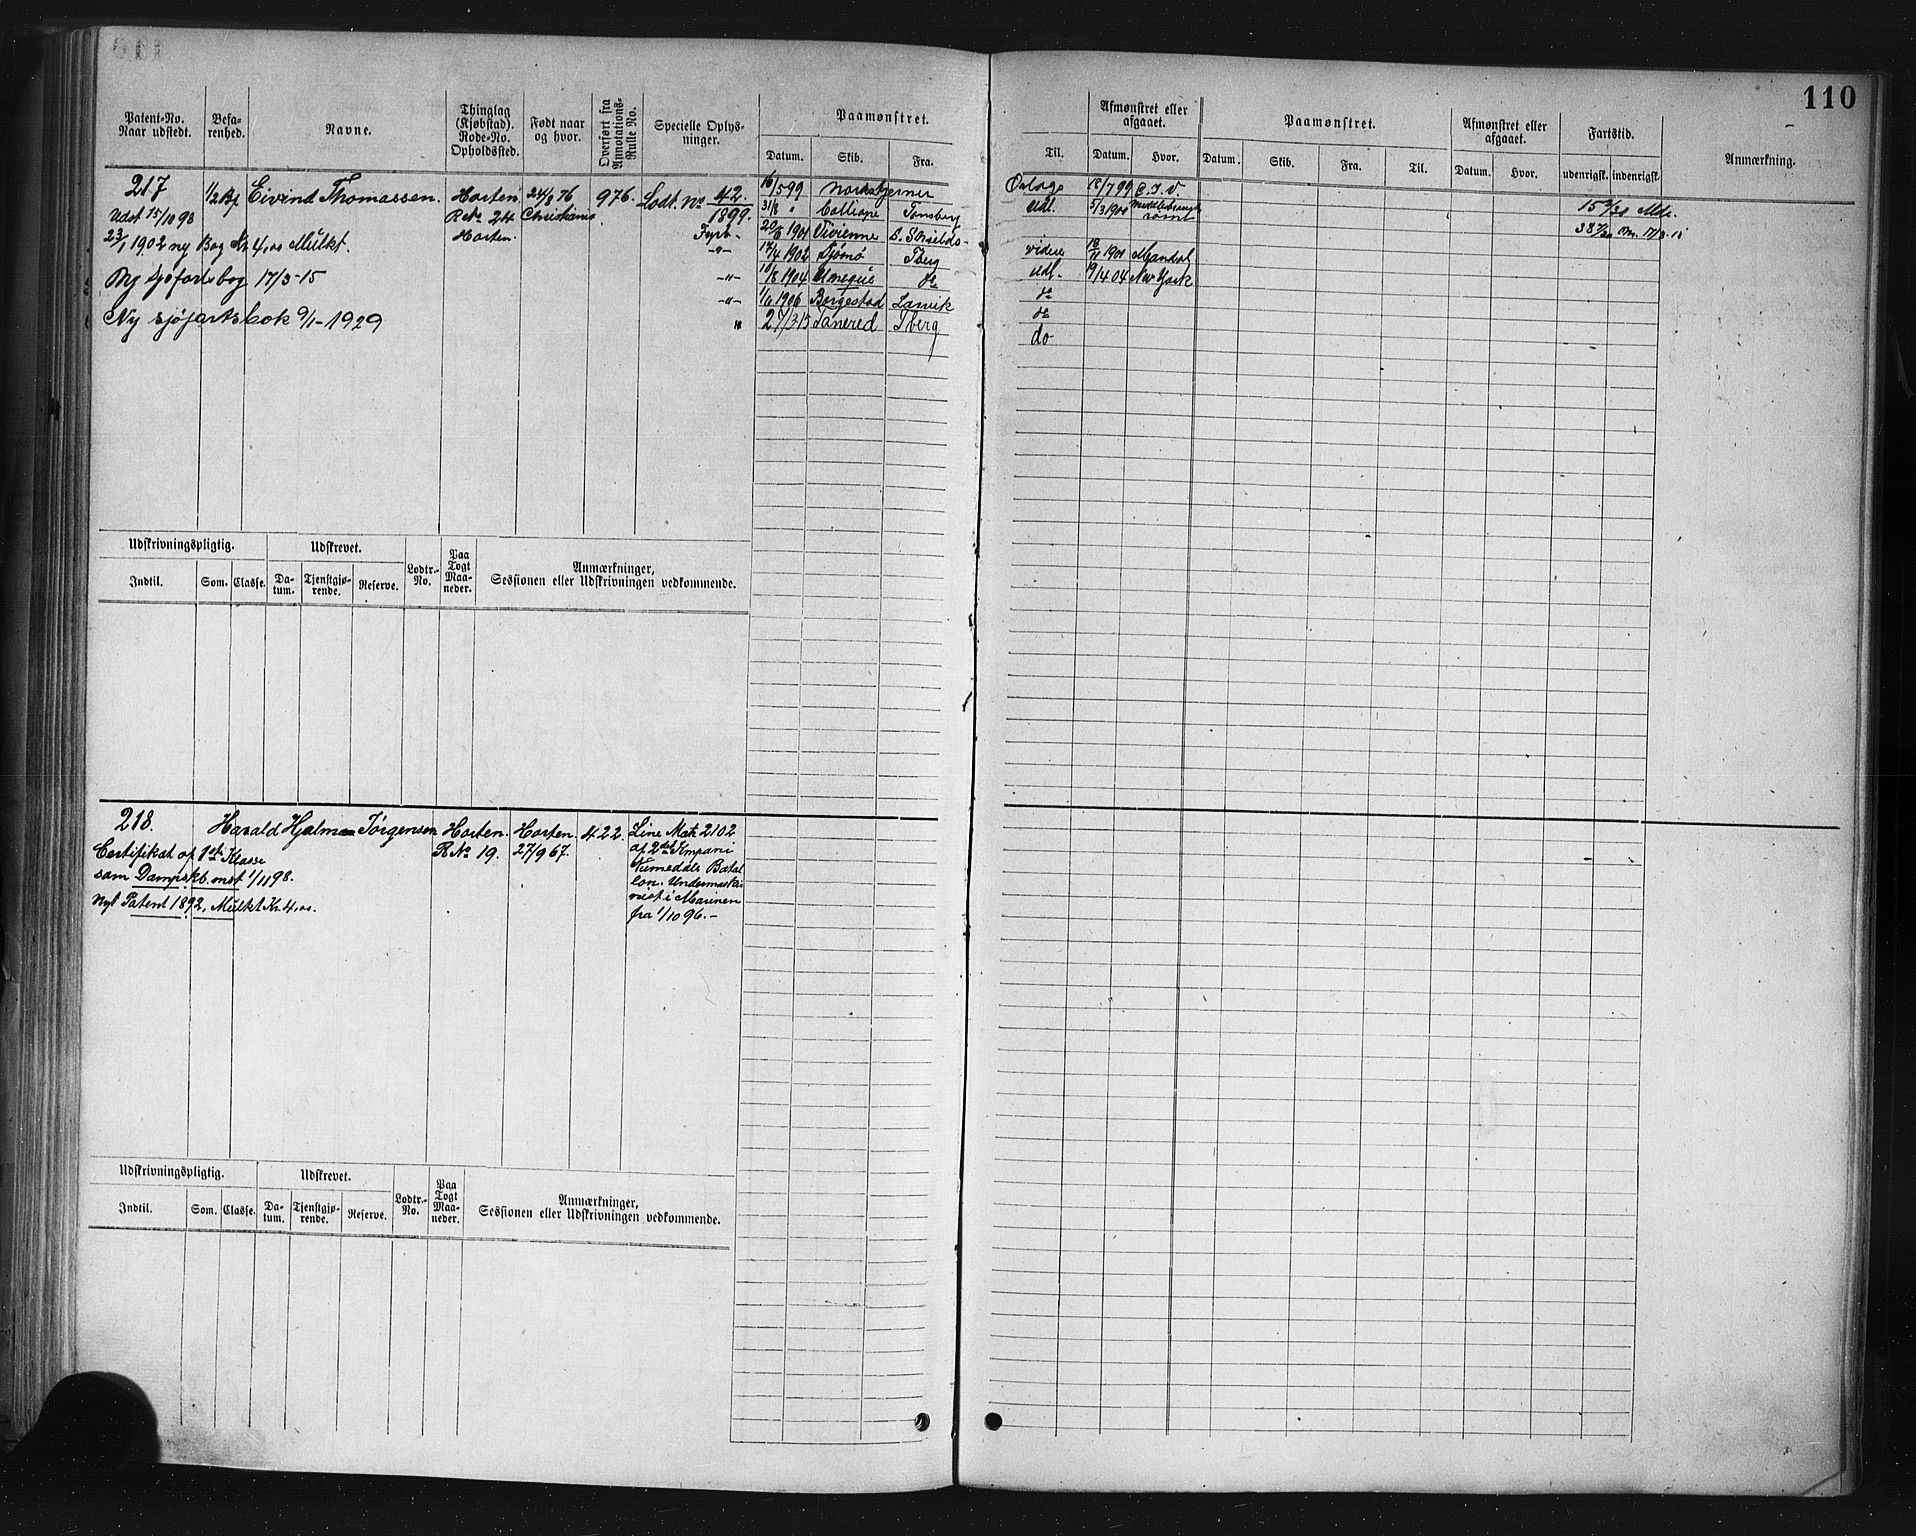 110
Patent-No. Naar udstedt.
Befa-renhed.
Navne.
Thinglag (Kjøbstad). Rode-No. Opholdssted.
Født naar og hvor.
Overført fra Annotations-Rulle No.
Specielle Oplys-ninger.
Paamønstret.
Datum. Skib. Fra.
Til.
Afmønstret eller afgaaet.
Datum. Hvor.
Paamønstret.
Datum. Skib. Fra. Til.
Afmønstret eller afgaaet.
Datum. Hvor.
Fartstid.
udenrigsk. indenrigsk.
Anmærkning.
217 1/2 Bf Eivind Thomassen. Horten 24/8 76 976. Lodt. No 42. 16/5 99
Udst 15/10 98 R No 24 Christiania 1899. 31/8 " Calliope Tønsberg udl. 5/3 1900 rømt
23/1 1902 ny Bog Kr 4,00 Mulkt. Horten. Fyrb. 20/6 1901 Vivienne S. Shields videre 1901 Mandal
-"- 17/4 1902 Tjømø Tberg udl. 19/4 04 New York
Ny sjøfartsbog 17/3-15 -"- 10/8 1904 do do
-"- 1/6 1906 Borgestad Larvik do
Ny sjøfartsbok 9/1-1929 " 27/3 15 Tancred Tberg do
Orlogs 18/7 99 C.J.V.
15 3/30 Mdr.
17/3-15
Udskrivningspligtig. Udskrevet. Lodtr.-No. Paa Togt Maa-neder. Anmærkninger, Sessionen eller Udskrivningen vedkommende.
Indtil. Som. Classe. Da-tum. Tjenstgjø-rende. Reserve.
218. Harald Hjalmar Jörgensen Horten. Horten 422. Line Mat 2102
Certifikat af 1ste Klasse R No 19. 27/9 67. af 2det Kompani
som Dampskb. mst 1/11 98. Numedals Batal
lon. Undermaski
Nyt Patent 1892, Mulkt Kr. 4,00. nist i Marinen
fra 1/10 96.-
Udskrivningspligtig. Udskrevet. Lodtr.-No. Paa Togt Maa-neder. Anmærkninger, Sessionen eller Udskrivningen vedkommende.
Indtil. Som. Classe. Da-tum. Tjenstgjø-rende. Reserve.